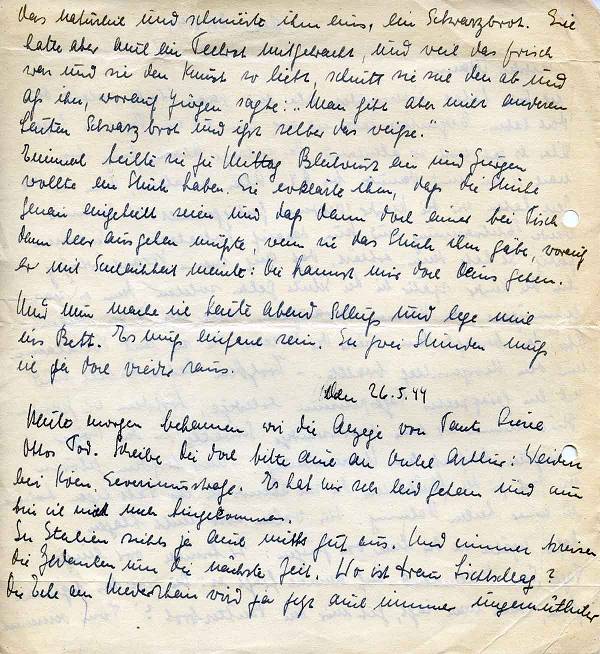 das natürlich und schmierte ihm eins, ein Schwarzbrot. Sie
hatte aber auch ein mitgebracht, und weil das frisch
war und sie den so liebt, schnitt sie sich den ab und
aß ihn, worauf Jürgen sagte: „Man gibt aber nicht anderen
Leuten Schwarzbrot und ißt selber das weiße."
Einmal teilte sie zu Mittag Blutwurst ein und Jürgen
wollte ein Stück haben. Sie erklärte ihm, daß die Stücke
genau eingeteilt seien und daß dann doch einer bei Tisch
dann leer ausgehen müßte, wenn sie das Stück ihm gäbe, worauf
er mit meinte: Du kannst mir doch Deins geben.
Und nun mache ich heute Abend Schluß und lege mich
ins Bett. Es muß sein. In zwei Stunden muß
ich ja doch wieder raus.
Den 26.5.44
Heute morgen bekamen wir die Anzeige von Tante
Ottos Tod. Schreibe Du doch bitte auch an Onkel Arthur: Weiden
bei Köln, Severinusstraße. Es hat mir sehr leid getan und nun
bin ich nicht mehr hingekommen.
In Italien siehts ja auch nicht gut aus. Und immer kreisen
die Gedanken um die nächste Zeit. Wo ist
Die Ecke am Niederrhein wird ja jetzt auch immer ungemütlicher